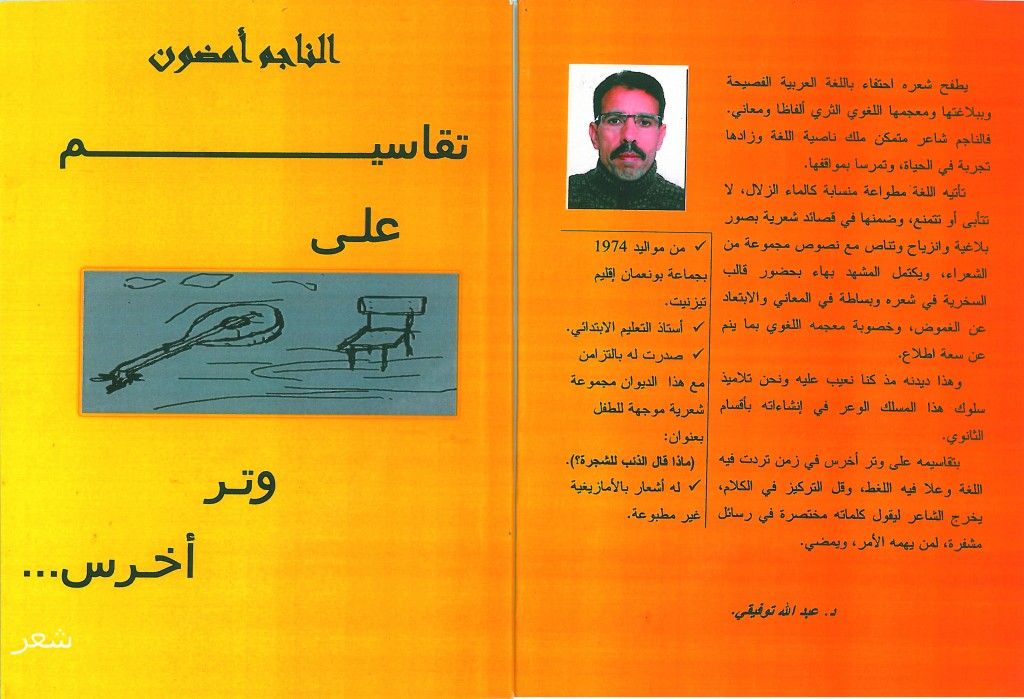 الناجم أمضون
تقاسيـــــــــــــــــــــم
على
وتـر
أخـرس...
شعر
يطفح شعره احتفاء باللغة العربية الفصيحة
وببلاغتها ومعجمها اللغوي الثري ألفاظا ومعاني.
فالناجم شاعر متمكن ملك ناصية اللغة وزادها
تجربة في الحياة، وتمرسا بمواقفها.
تأتيه اللغة مطواعة منسابة كالماء الزلال، لا
تتأبى أو تتمنع، وضمنها في قصائد شعرية بصور
بلاغية وانزياح وتناص مع نصوص مجموعة من
الشعراء، ويكتمل المشهد بهاء بحضور قالب
السخرية في شعره وبساطة في المعاني والابتعاد
عن الغموض، وخصوبة معجمه اللغوي بما ينم
عن سعة اطلاع.
وهذا ديدنه مذ كنا نعيب عليه ونحن تلاميذ
سلوك هذا المسلك الوعر في إنشاءاته بأقسام
الثانوي.
بتقاسيمه على وتر أخرس في زمن تردت فيه
اللغة وعلا فيه اللغط، وقل التركيز في الكلام،
يخرج الشاعر ليقول كلماته مختصرة في رسائل
مشفرة، لمن يهمه الأمر، ويمضي.
د. عبد الله توفيقي.
✓ من مواليد 1974
بجماعة بونعمان إقليم
تيزنيت.
✓ أستاذ التعليم الابتدائي.
✓ صدرت له بالتزامن
مع هذا الديوان مجموعة
شعرية موجهة للطفل
بعنوان:
(ماذا قال الذئب للشجرة؟).
✓ له أشعار بالأمازيغية
غير مطبوعة.